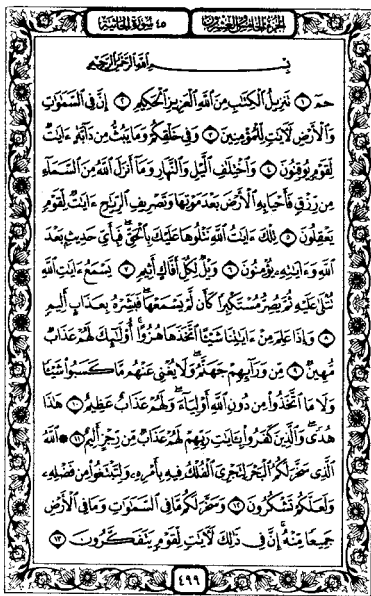 الجزء الخامس والعشرون ٤٥ سورة الجاثية
بِسْمِ اللَّهِ الرَّحْمَٰنِ الرَّحِيمِ
حمٓ ١ تَنزِيلُ ٱلْكِتَٰبِ مِنَ ٱللَّهِ ٱلْعَزِيزِ ٱلْحَكِيمِ ٢ إِنَّ فِى ٱلسَّمَٰوَٰتِ
وَٱلْأَرْضِ لَءَايَٰتٍ لِّلْمُؤْمِنِينَ ٣ وَفِى خَلْقِكُمْ وَمَا يَبُثُّ مِن دَآبَّةٍ ءَايَٰتٌ
لِّقَوْمٍ يُوقِنُونَ ٤ وَٱخْتِلَٰفِ ٱلَّيْلِ وَٱلنَّهَارِ وَمَآ أَنزَلَ ٱللَّهُ مِنَ ٱلسَّمَآءِ
مِن رِّزْقٍ فَأَحْيَا بِهِ ٱلْأَرْضَ بَعْدَ مَوْتِهَا وَتَصْرِيفِ ٱلرِّيَٰحِ ءَايَٰتٌ لِّقَوْمٍ
يَعْقِلُونَ ٥ تِلْكَ ءَايَٰتُ ٱللَّهِ نَتْلُوهَا عَلَيْكَ بِٱلْحَقِّ ۖ فَبِأَىِّ حَدِيثٍۭ بَعْدَ
ٱللَّهِ وَءَايَٰتِهِۦ يُؤْمِنُونَ ٦ وَيْلٌ لِّكُلِّ أَفَّاكٍ أَثِيمٍ ٧ يَسْمَعُ ءَايَٰتِ ٱللَّهِ
تُتْلَىٰ عَلَيْهِ ثُمَّ يُصِرُّ مُسْتَكْبِرًا كَأَن لَّمْ يَسْمَعْهَا ۖ فَبَشِّرْهُ بِعَذَابٍ أَلِيمٍ
٨ وَإِذَا عَلِمَ مِنْ ءَايَٰتِنَا شَيْـًٔا ٱتَّخَذَهَا هُزُوًا ۚ أُو۟لَٰٓئِكَ لَهُمْ عَذَابٌ
مُّهِينٌ ٩ مِّن وَرَآئِهِمْ جَهَنَّمُ ۖ وَلَا يُغْنِى عَنْهُم مَّا كَسَبُوا۟ شَيْـًٔا
وَلَا مَا ٱتَّخَذُوا۟ مِن دُونِ ٱللَّهِ أَوْلِيَآءَ ۖ وَلَهُمْ عَذَابٌ عَظِيمٌ ١٠ هَٰذَا
هُدًى ۖ وَٱلَّذِينَ كَفَرُوا۟ بِـَٔايَٰتِ رَبِّهِمْ لَهُمْ عَذَابٌ مِّن رِّجْزٍ أَلِيمٌ ١١ ۞ ٱللَّهُ
ٱلَّذِى سَخَّرَ لَكُمُ ٱلْبَحْرَ لِتَجْرِىَ ٱلْفُلْكُ فِيهِ بِأَمْرِهِۦ وَلِتَبْتَغُوا۟ مِن فَضْلِهِۦ
وَلَعَلَّكُمْ تَشْكُرُونَ ١٢ وَسَخَّرَ لَكُم مَّا فِى ٱلسَّمَٰوَٰتِ وَمَا فِى ٱلْأَرْضِ
جَمِيعًا مِّنْهُ ۚ إِنَّ فِى ذَٰلِكَ لَءَايَٰتٍ لِّقَوْمٍ يَتَفَكَّرُونَ ١٣
٤٩٩